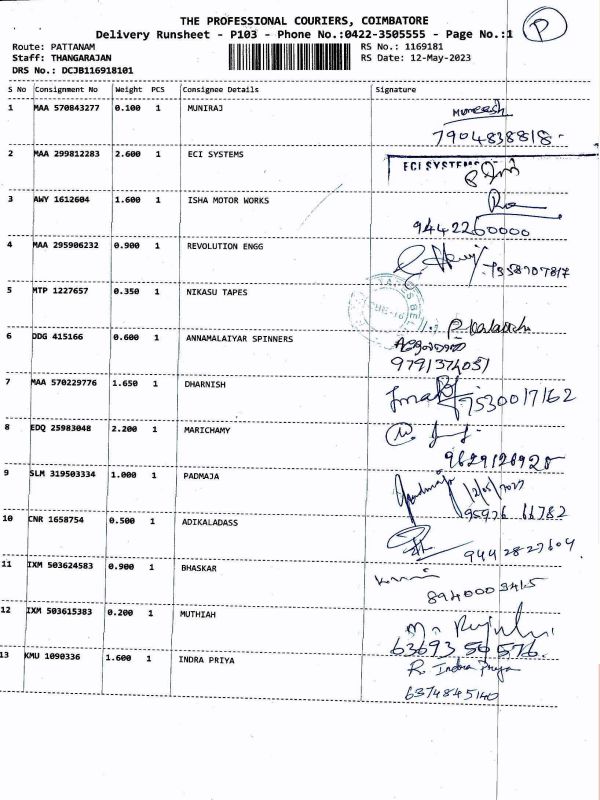 THE PROFESSIONAL COURIERS, COIMBATORE
Delivery Runsheet - P103 - Phone No.:0422-3505555 - Page No.:1
P
Route: PATTANAM RS No.: 1169181
Staff: THANGARAJAN RS Date: 12-May-2023
DRS No.: DCJB116918101
S No Consignment No Weight PCS Consignee Details Signature
1 MAA 570843277 0.100 1 MUNIRAJ
7904838818
2 MAA 299812283 2.600 1 ECI SYSTEMS ECI SYSTEMS
3 AWY 1612604 1.600 1 ISHA MOTOR WORKS
9442260000
4 MAA 295906232 0.900 1 REVOLUTION ENGG
7358707817
5 MTP 1227657 0.350 1 NIKASU TAPES
6 DDG 415166 0.600 1 ANNAMALAIYAR SPINNERS
9791374051
7 MAA 570229776 1.650 1 DHARNISH
9530017162
8 EDQ 25983048 2.200 1 MARICHAMY
9629126928
9 SLM 319503334 1.000 1 PADMAJA
Padmaja 12/05/2023
95976 11782
10 CNR 1658754 0.500 1 ADIKALADASS
9442827604
11 IXM 503624583 0.900 1 BHASKAR
8940003415
12 IXM 503615383 0.200 1 MUTHIAH
6369356576
13 KMU 1090336 1.600 1 INDRA PRIYA R. Indra Priya
6374845140